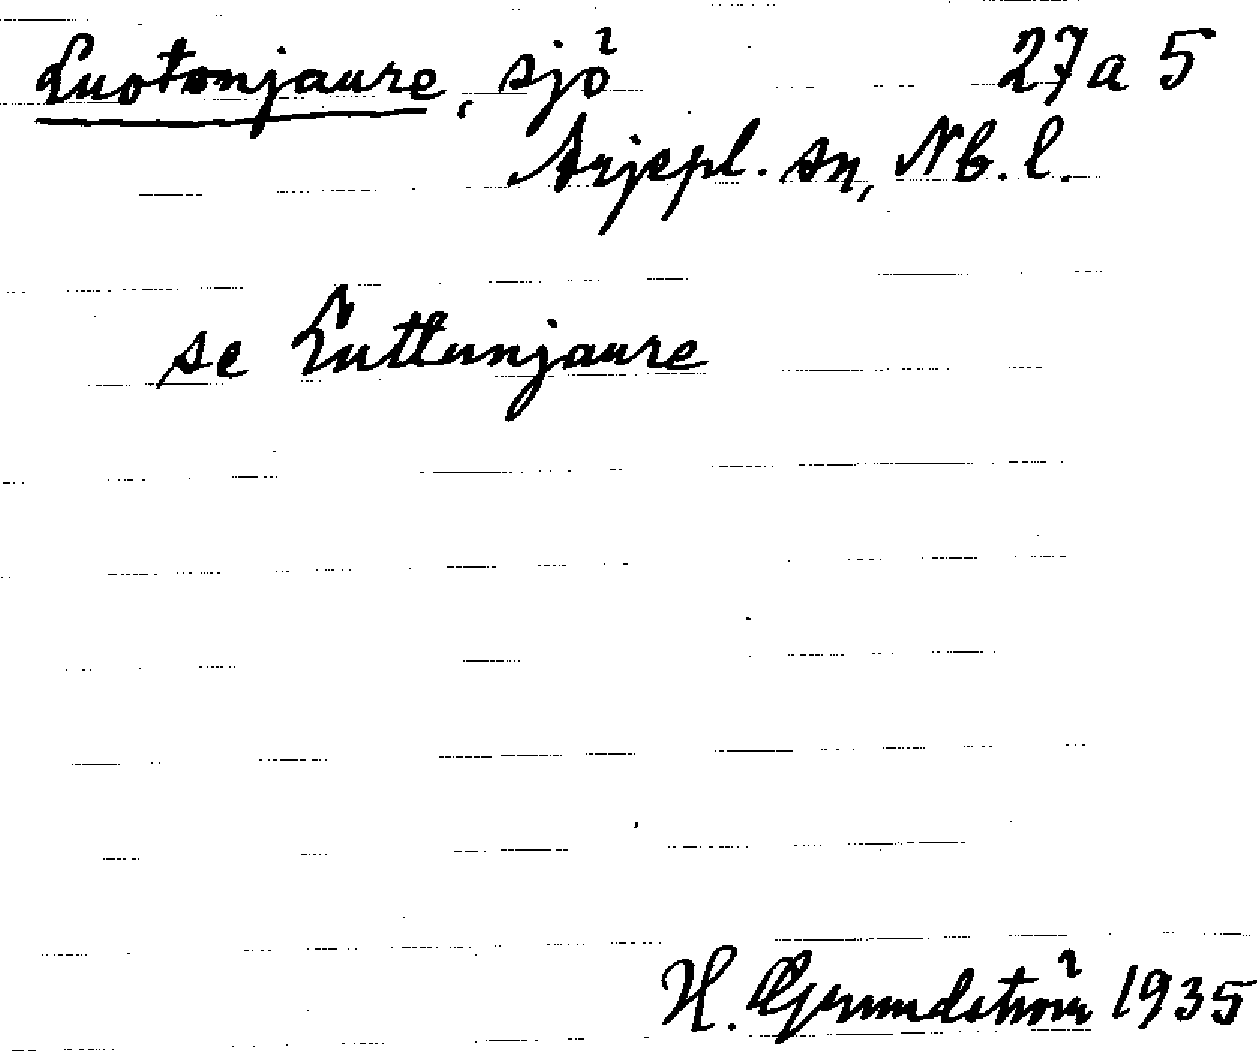 Luotonjaure, sjö 27a 5
Arjepl. sn, Nb. l.
se Luttunjaure
H. Grundström 1935